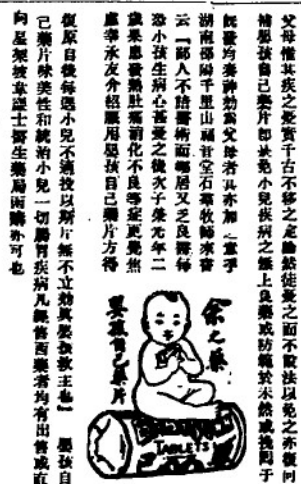 父母惟其疾之憂實千古不移之定論然徒憂之而不設法以免之亦復何
補嬰孩自己藥片卽是免小兒疾病之無上良藥或防範於未然或挽囘于
旣發均奏神効爲父母者其亦加之意乎
湖南邵陽千里山福音堂石 牧師來書
云「鄙人不諳醫術面鄉居又乏良醫每
恐小孩生病心甚憂之後次子榮元年二
歲果患發熱肚痛消化不良等症更覺焦
慮幸承友介紹服用嬰孩自己藥片方得
復原自後每遇小兒不適投以斯片無不立効眞嬰孩救主也」 嬰孩自
己藥片味美性和統治小兒一切腸胃疾病凡經售西藥者均有出售或直
向 韋廉士醫生藥局函購亦可也
余之藥
嬰孩自己藥片
TABLETS